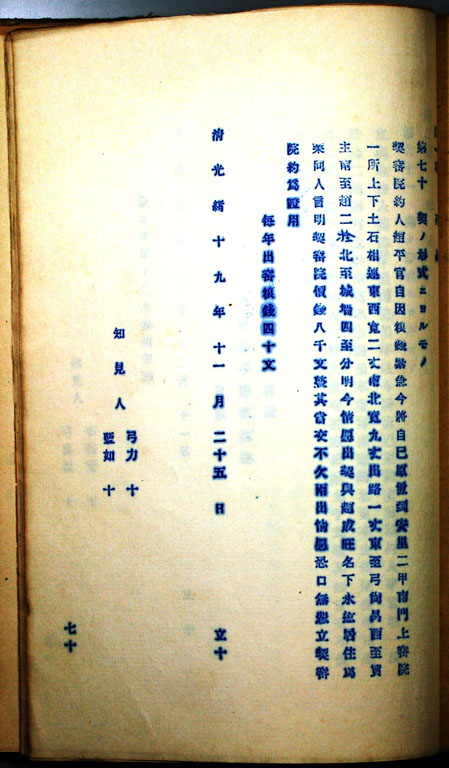 第七十 契ノ形式ニヨルモノ
契窰院約人趙平官自因糧錢緊急今將自己原置到安里二甲南門上窰院
一所上下土石相連東西寬二丈南北寬九丈出路一丈東至弓尚昌西至買
主南至趙二於北至城墻四至分明今情愿出契與趙成旺名下永遠居住爲
業同人言明契窰院價錢八千文整其當交不欠兩出情愿恐口無憑立契窰
院約爲證用
每年出窰糧錢四十文
清光緒十九年十一月二十五日 立十
知見人 弓力十
藍如十
七十